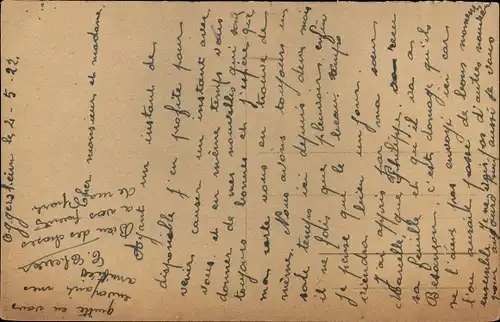 Oggersheim le 4-5-22.
Cher monsieur et madame.
Ayant un instant de
disponible j'en profite pour
venir causer un instant avec
vous et en même temps vous
donner de mes nouvelles qui sont
toujours bonnes et j'espère que
ma carte vous en trouve de
même. Nous avons toujours un
sale temps ici depuis deux mois
il ne fait que pleuvoir, enfin
je pense que le beau temps
viendra bien un jour.
J'ai appris par ma sœur
Marcelle que Philippe reçu
sa feuille et qu'il va à
Besançon c'est domage qu'ils
ne l'aient pas envoyé ici car
l'on aurait passé de bons moments
ensemble. Je ne vois pas d'autres nouvelles
aussi je vous
quitte en vous
envoyant mes
amitiés
Bien des choses
à vos parents
de ma part